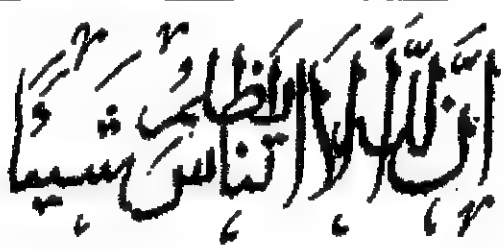 إِنَّ اللَّهَ لَا يَظْلِمُ النَّاسَ شَيْئًا